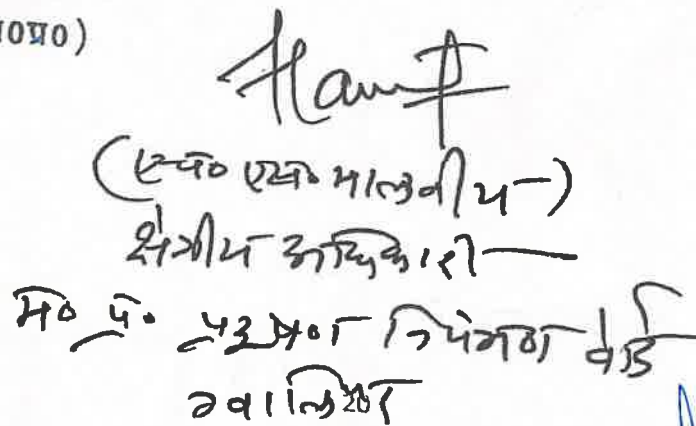 ०प्र०)
(एच० एस० मालवीय)
क्षेत्रीय अधिकारी
म० प्र० प्रदूषण नियंत्रण बोर्ड
ग्वालियर